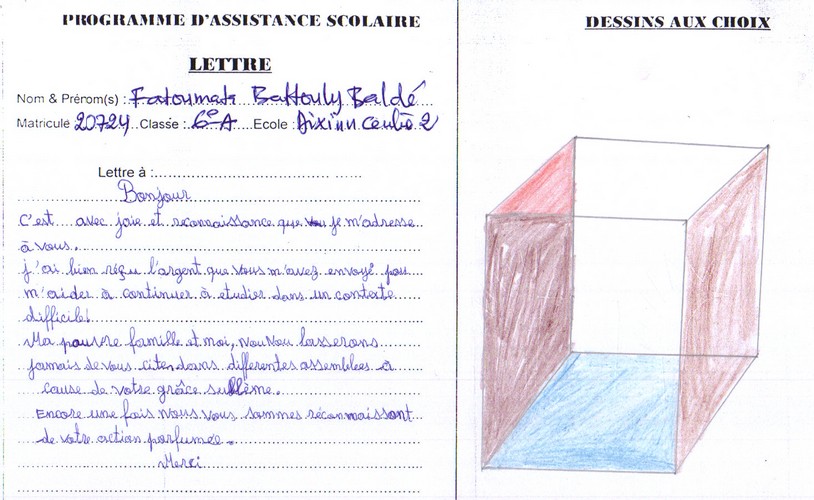 PROGRAMME D'ASSISTANCE SCOLAIRE
LETTRE
Nom & Prénom(s) : Fatoumata Battouly Baldé
Matricule 20724 Classe : 6e A Ecole : Dixinn Centre 2
Lettre à :
Bonjour
C'est avec joie et reconnaissance que je m'adresse
à vous.
j'ai bien réçu l'argent que vous m'avez envoyé pou
m'aider à continuer à etudier dans un contexte
difficile!
Ma pauvre famille et moi, nou lasserons
jamais de vous citer dans differentes assemblées à
cause de votre grâce sublème.
Encore une fois nous vous sommes réconnaissant
de votre action parfumée.
Merci
DESSINS AUX CHOIX